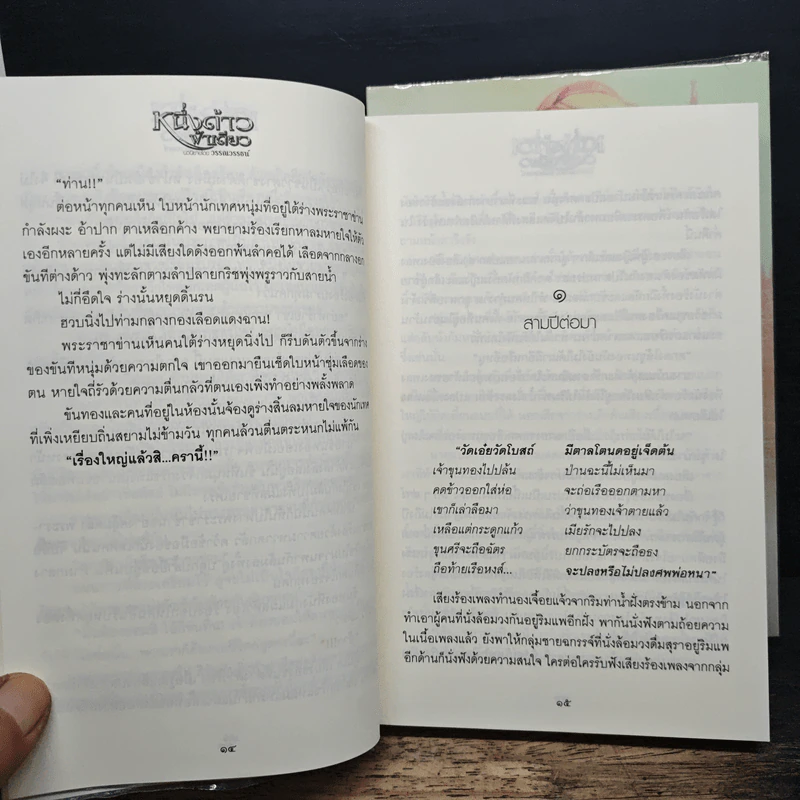 หนึ่งด้าว
ฟ้าเดียว
วรรณวรรธน์
“ท่าน!!”
ต่อหน้าทุกคนเห็น ใบหน้านักเทศหนุ่มที่อยู่ใต้ร่างพระราชาข่าน
กำลังผงะ อ้าปาก ตาเหลือกค้าง พยายามร้องเรียกหาลมหายใจให้ตัว
เองอีกหลายครั้ง แต่ไม่มีเสียงใดดังออกพ้นลำคอได้ เลือดจากกลางอก
ขันทีต่างด้าว พุ่งทะลักตามลำปลายกริชพุ่งพรูราวกับสายน้ำ
ไม่กี่อึดใจ ร่างนั้นหยุดดิ้นรน
ฮวบนิ่งไปท่ามกลางกองเลือดแดงฉาน!
พระราชาข่านเห็นคนใต้ร่างหยุดนิ่งไป ก็รีบดันตัวขึ้นจากร่าง
ของขันทีหนุ่มด้วยความตกใจ เขาออกมายืนเช็ดใบหน้าชุ่มเลือดของ
ตน หายใจถี่รัวด้วยความตื่นกลัวที่ตนเองเพิ่งทำอย่างพลั้งพลาด
ขันทองและคนที่อยู่ในห้องนั้นจ้องดูร่างสิ้นลมหายใจของนักเทศ
ที่เพิ่งเหยียบถิ่นสยามไม่ข้ามวัน ทุกคนล้วนตื่นตระหนกไม่แพ้กัน
“เรื่องใหญ่แล้วสิ...ครานี้!!”
๑๔
๑
สามปีต่อมา
“วัดเอ๋ยวัดโบสถ์ มีตาลโตนดอยู่เจ็ดต้น
เจ้าขุนทองไปปล้น ป่านฉะนี้ไม่เห็นมา
คดข้าวออกใส่ห่อ จะถ่อเรือออกตามหา
เขาก็เล่าลือมา ว่าขุนทองเจ้าตายแล้ว
เหลือแต่กระดูกแก้ว เมียรักจะไปปลง
ขุนศรีจะถือฉัตร ยกกระบัตรจะถือธง
ถือท้ายเรือหงส์... จะปลงหรือไม่ปลงศพพ่อหนา”
เสียงร้องเพลงทำนองเจื้อยแจ้วจากริมท่าน้ำฝั่งตรงข้าม นอกจาก
ทำเอาผู้คนที่นั่งล้อมวงกันอยู่ริมแพอีกฝั่ง พากันนั่งฟังตามถ้อยความ
ในเนื้อเพลงแล้ว ยังพาให้กลุ่มชายฉกรรจ์ที่นั่งล้อมวงดื่มสุราอยู่ริมแพ
อีกด้านก็นั่งฟังด้วยความสนใจ ใครต่อใครรับฟังเสียงร้องเพลงจากกลุ่ม
๑๕